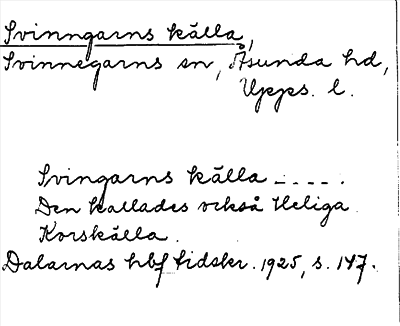 Svinngarns källa,
Svinnegarns sn, Åsunda hd,
Upps. l.
Svingarns källa _ _ _ _ .
Den kallades också Heliga
Korskälla.
Dalarnas hbf tidskr. 1925, s. 147.